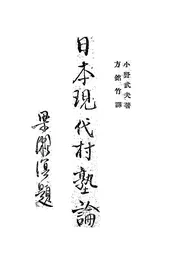 小野武夫著
方銘竹譯
日本現代村塾論
梁漱溟題